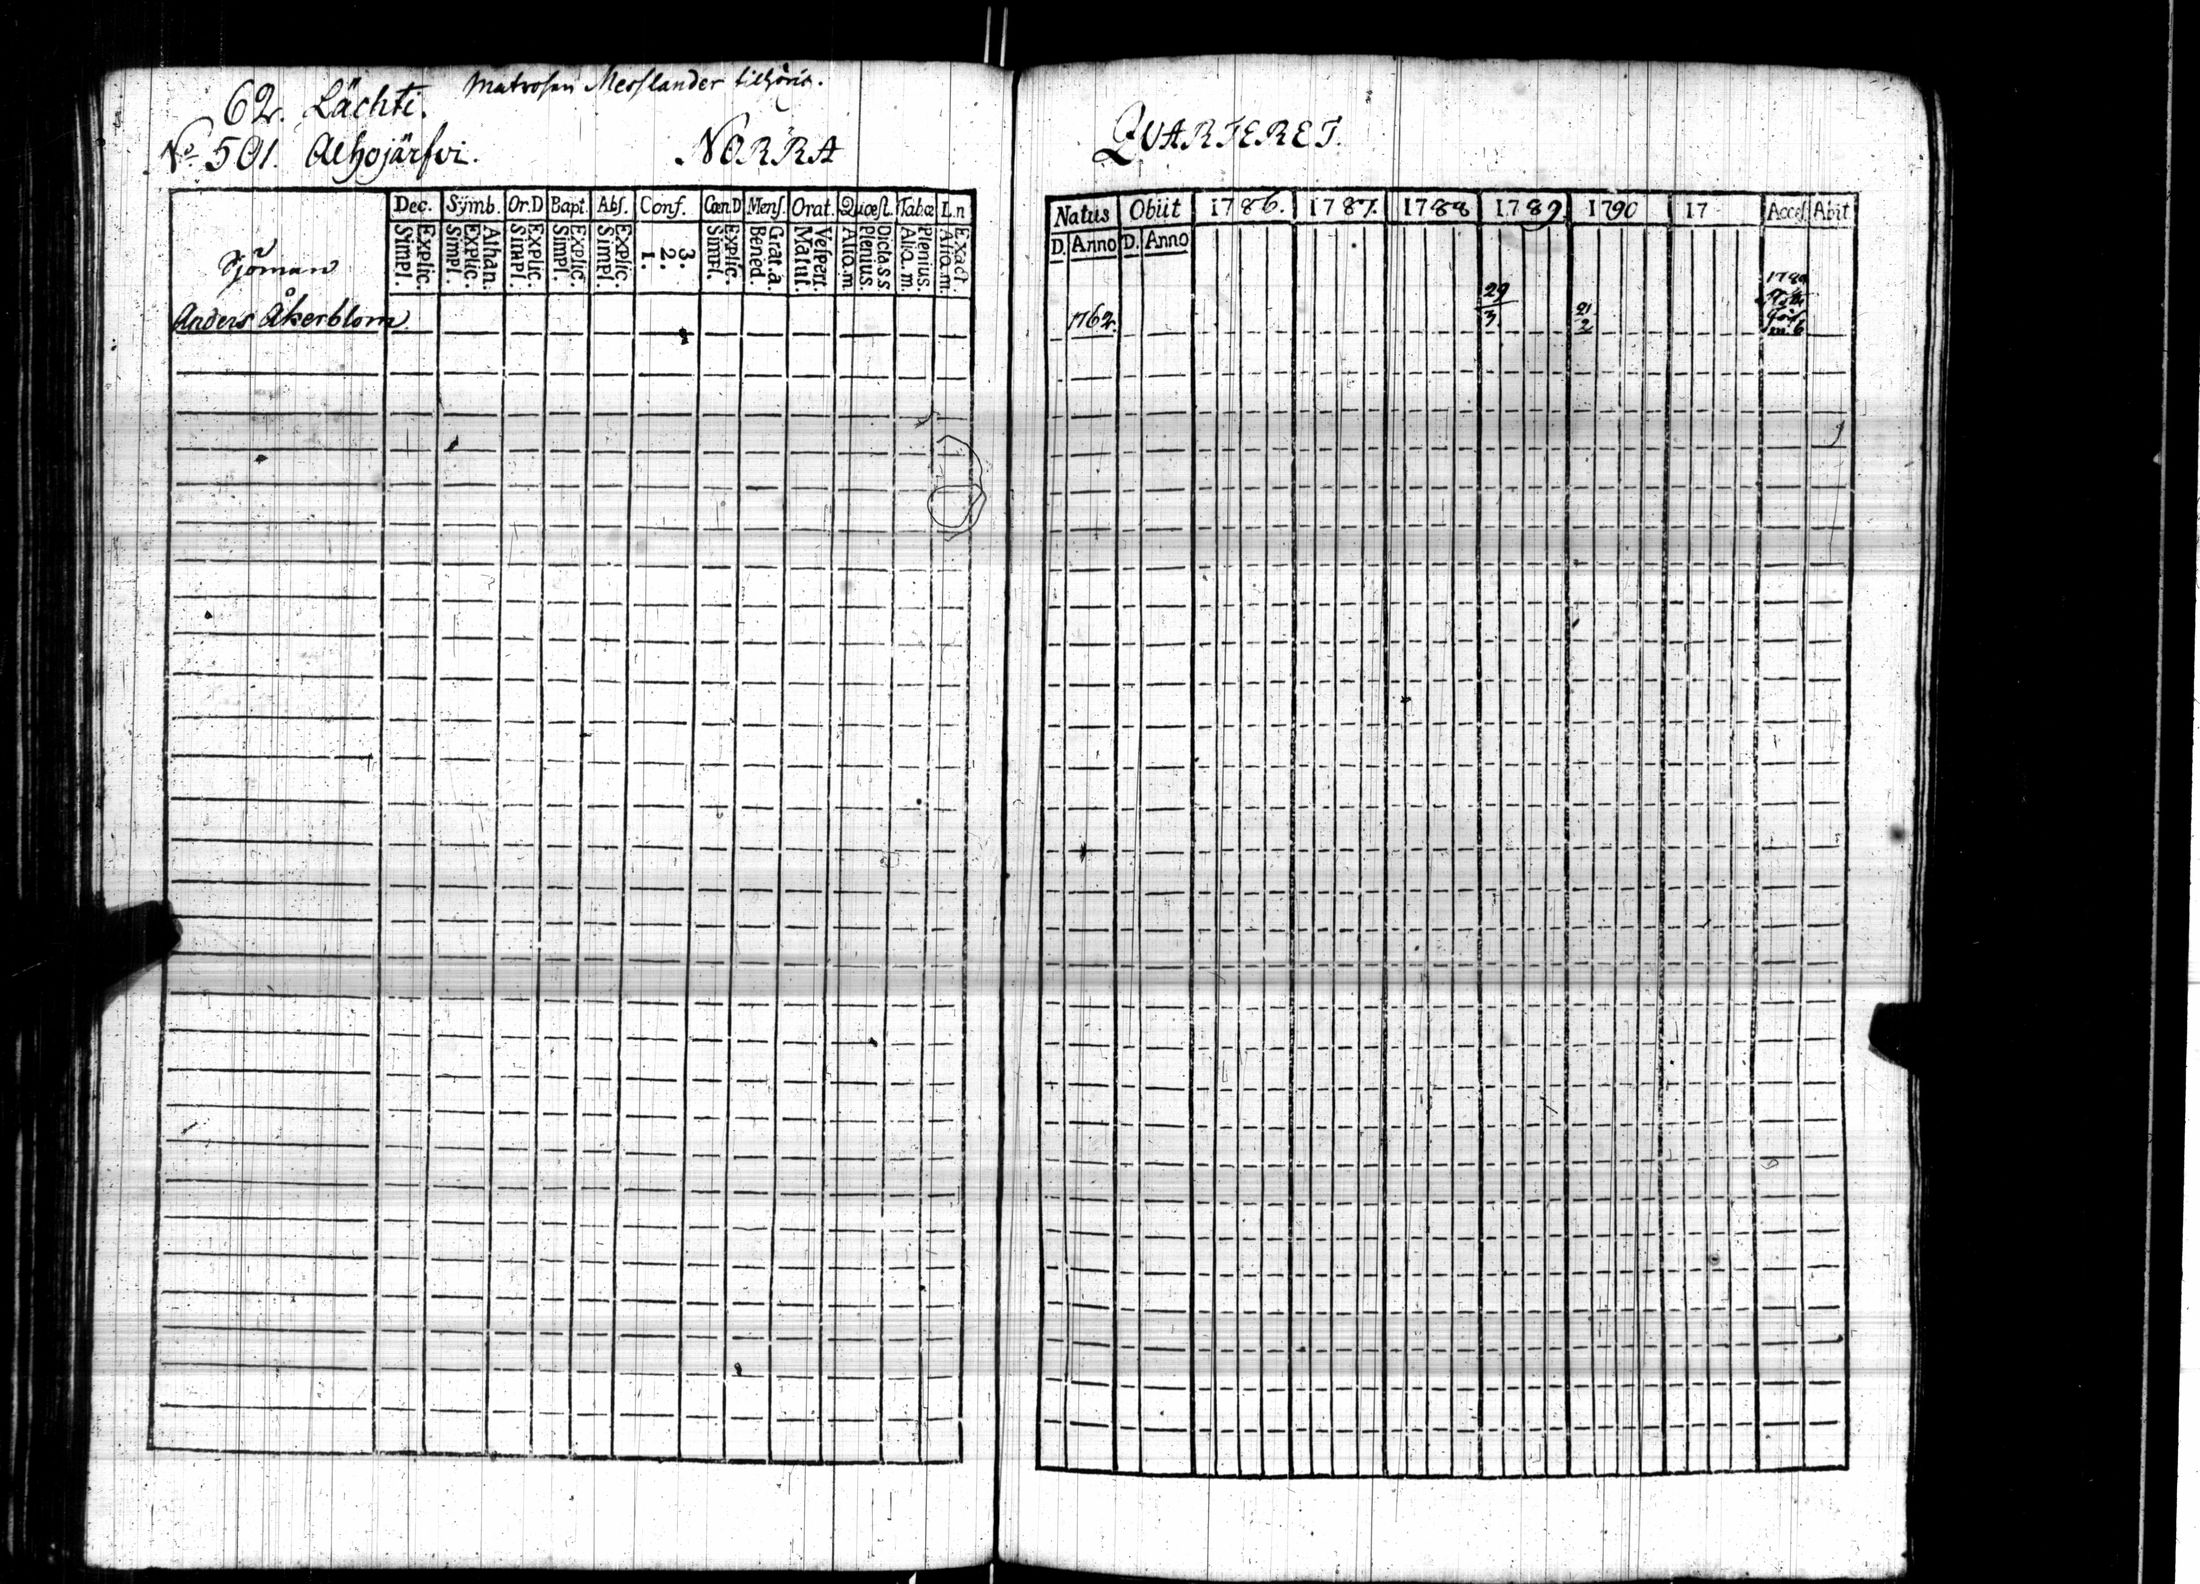 62. Lächti. Matrosen Messlander tilhörig.
No 501. Alhojärfvi. NORRA QUARTERET.
Dec. Sÿmb. Or.D Bapt. Abs. Conf. Cœn.D Mens. Orat. Quæst. Tabæ L.n
Explic. Simpl. Athan. Explic. Simpl. Explic. Simpl. Explic. Simpl. Explic. Simpl. 3. 2. 1. Explic. Simpl. Grat. a. Bened. Vespert. Matut. Dicta s.s Plenius. Alio. m Plenius. Alio. m. Exact. Alio. m.
Natus Obiit 1786. 1787. 1788 1789. 1790 17 Acces. Abit
D. Anno D. Anno
Sjöman
Anders Åkerblom 1762. 29/3 21/2